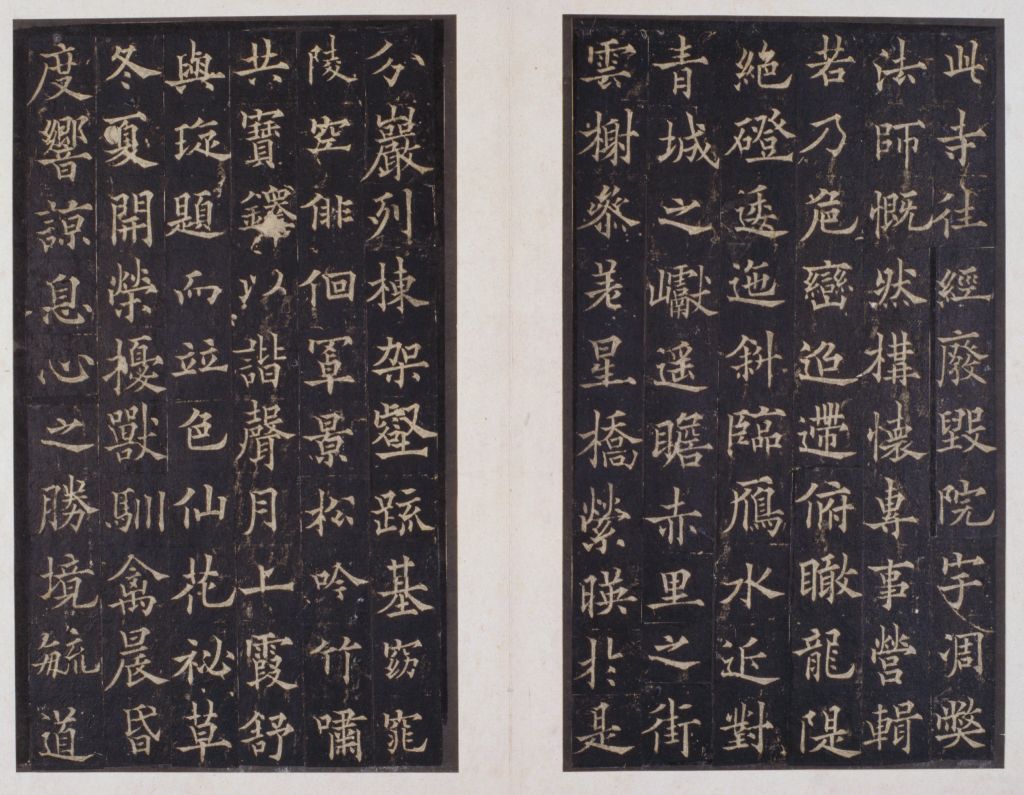 此寺往經廢毀院宇凋弊
法師慨然構懷專事營輯
若乃危巒迢遰俯瞰龍隄
絶磴逶迤斜臨鴈水近對
青城之巘遥瞻赤里之街
雲榭叅差星橋縈暎於是
分巖列棟架壑疏基窈窕
陵空俳佪罩景松吟竹嘯
共寶鐸以諧聲月上霞舒
與琁題而竝色仙花祕草
冬夏開榮擾獸馴禽晨昏
度響諒息心之勝境毓道